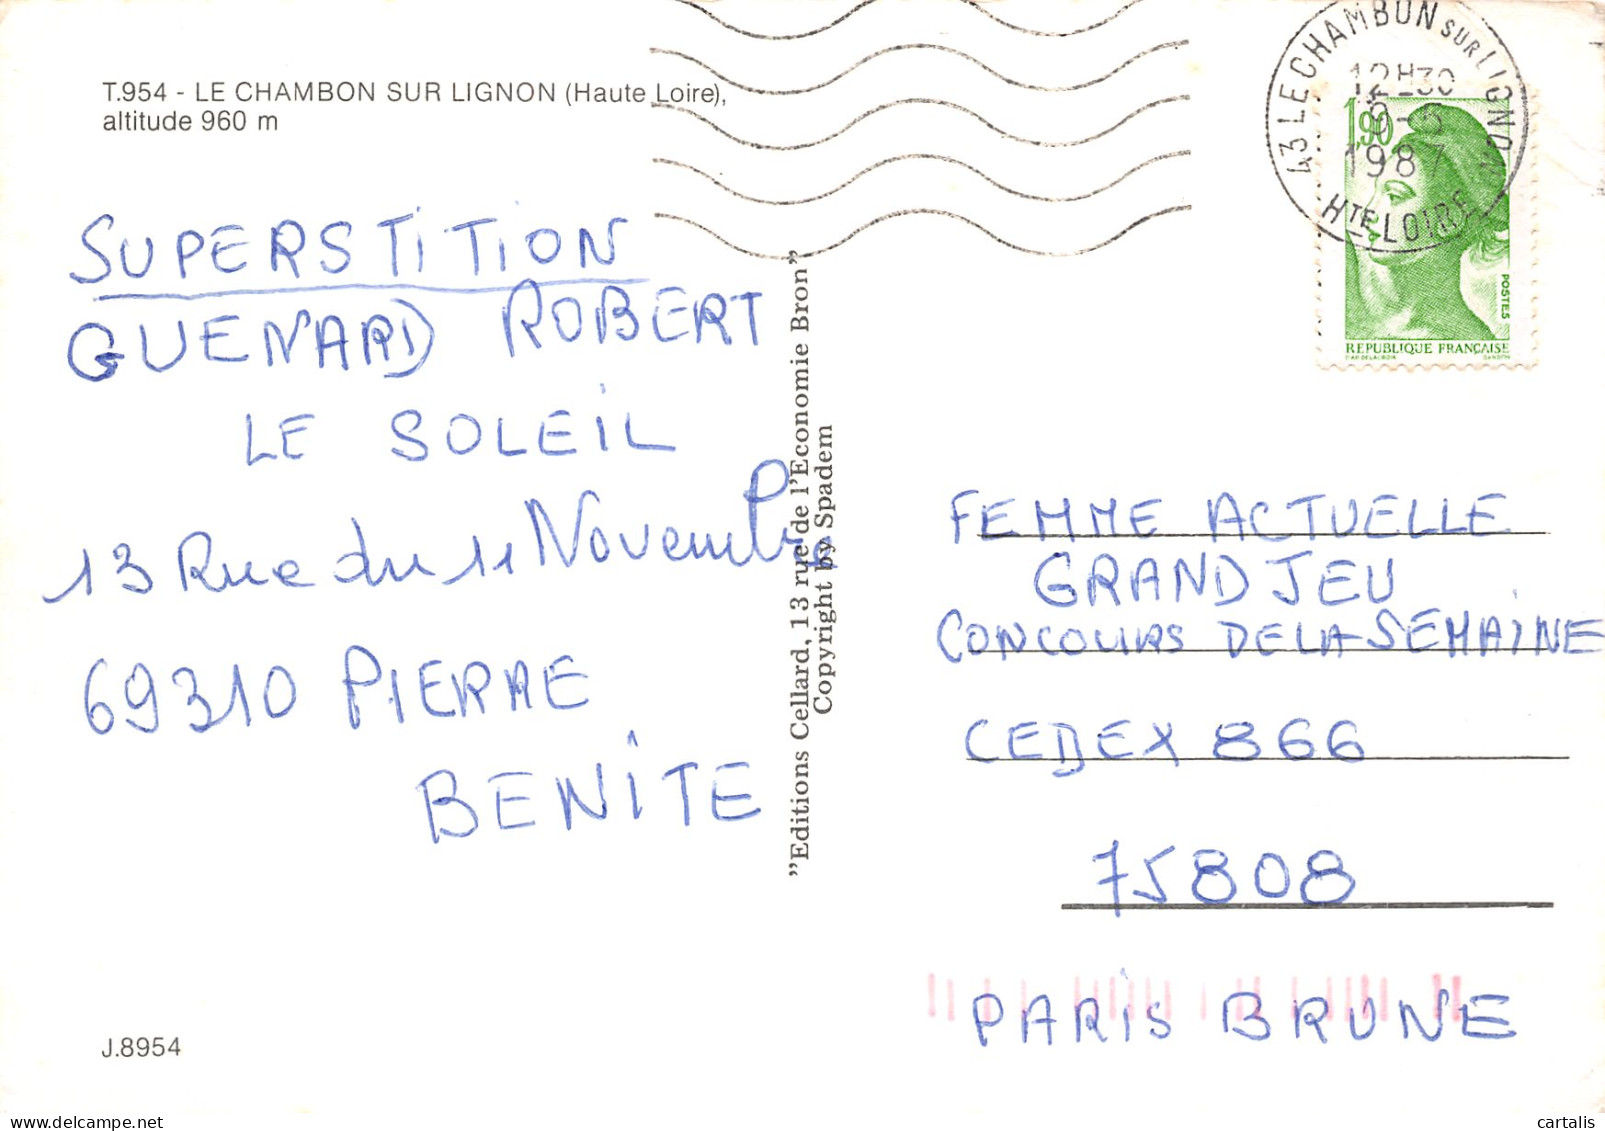 T.954 - LE CHAMBON SUR LIGNON (Haute Loire),
altitude 960 m
SUPERSTITION
GUENARD ROBERT
LE SOLEIL
13 Rue du 11 Novembre
69310 PIERRE
BENITE
J.8954
"Editions Cellard, 13 rue de l'Economie Bron"
Copyright by Spadem
43 LE CHAMBON SUR LIGNON
12H30
1987
HTE LOIRE
1,90
POSTES
REPUBLIQUE FRANÇAISE
FEMME ACTUELLE
GRAND JEU
CONCOURS DE LA SEMAINE
CEDEX 866
75808
PARIS BRUNE
cartalis